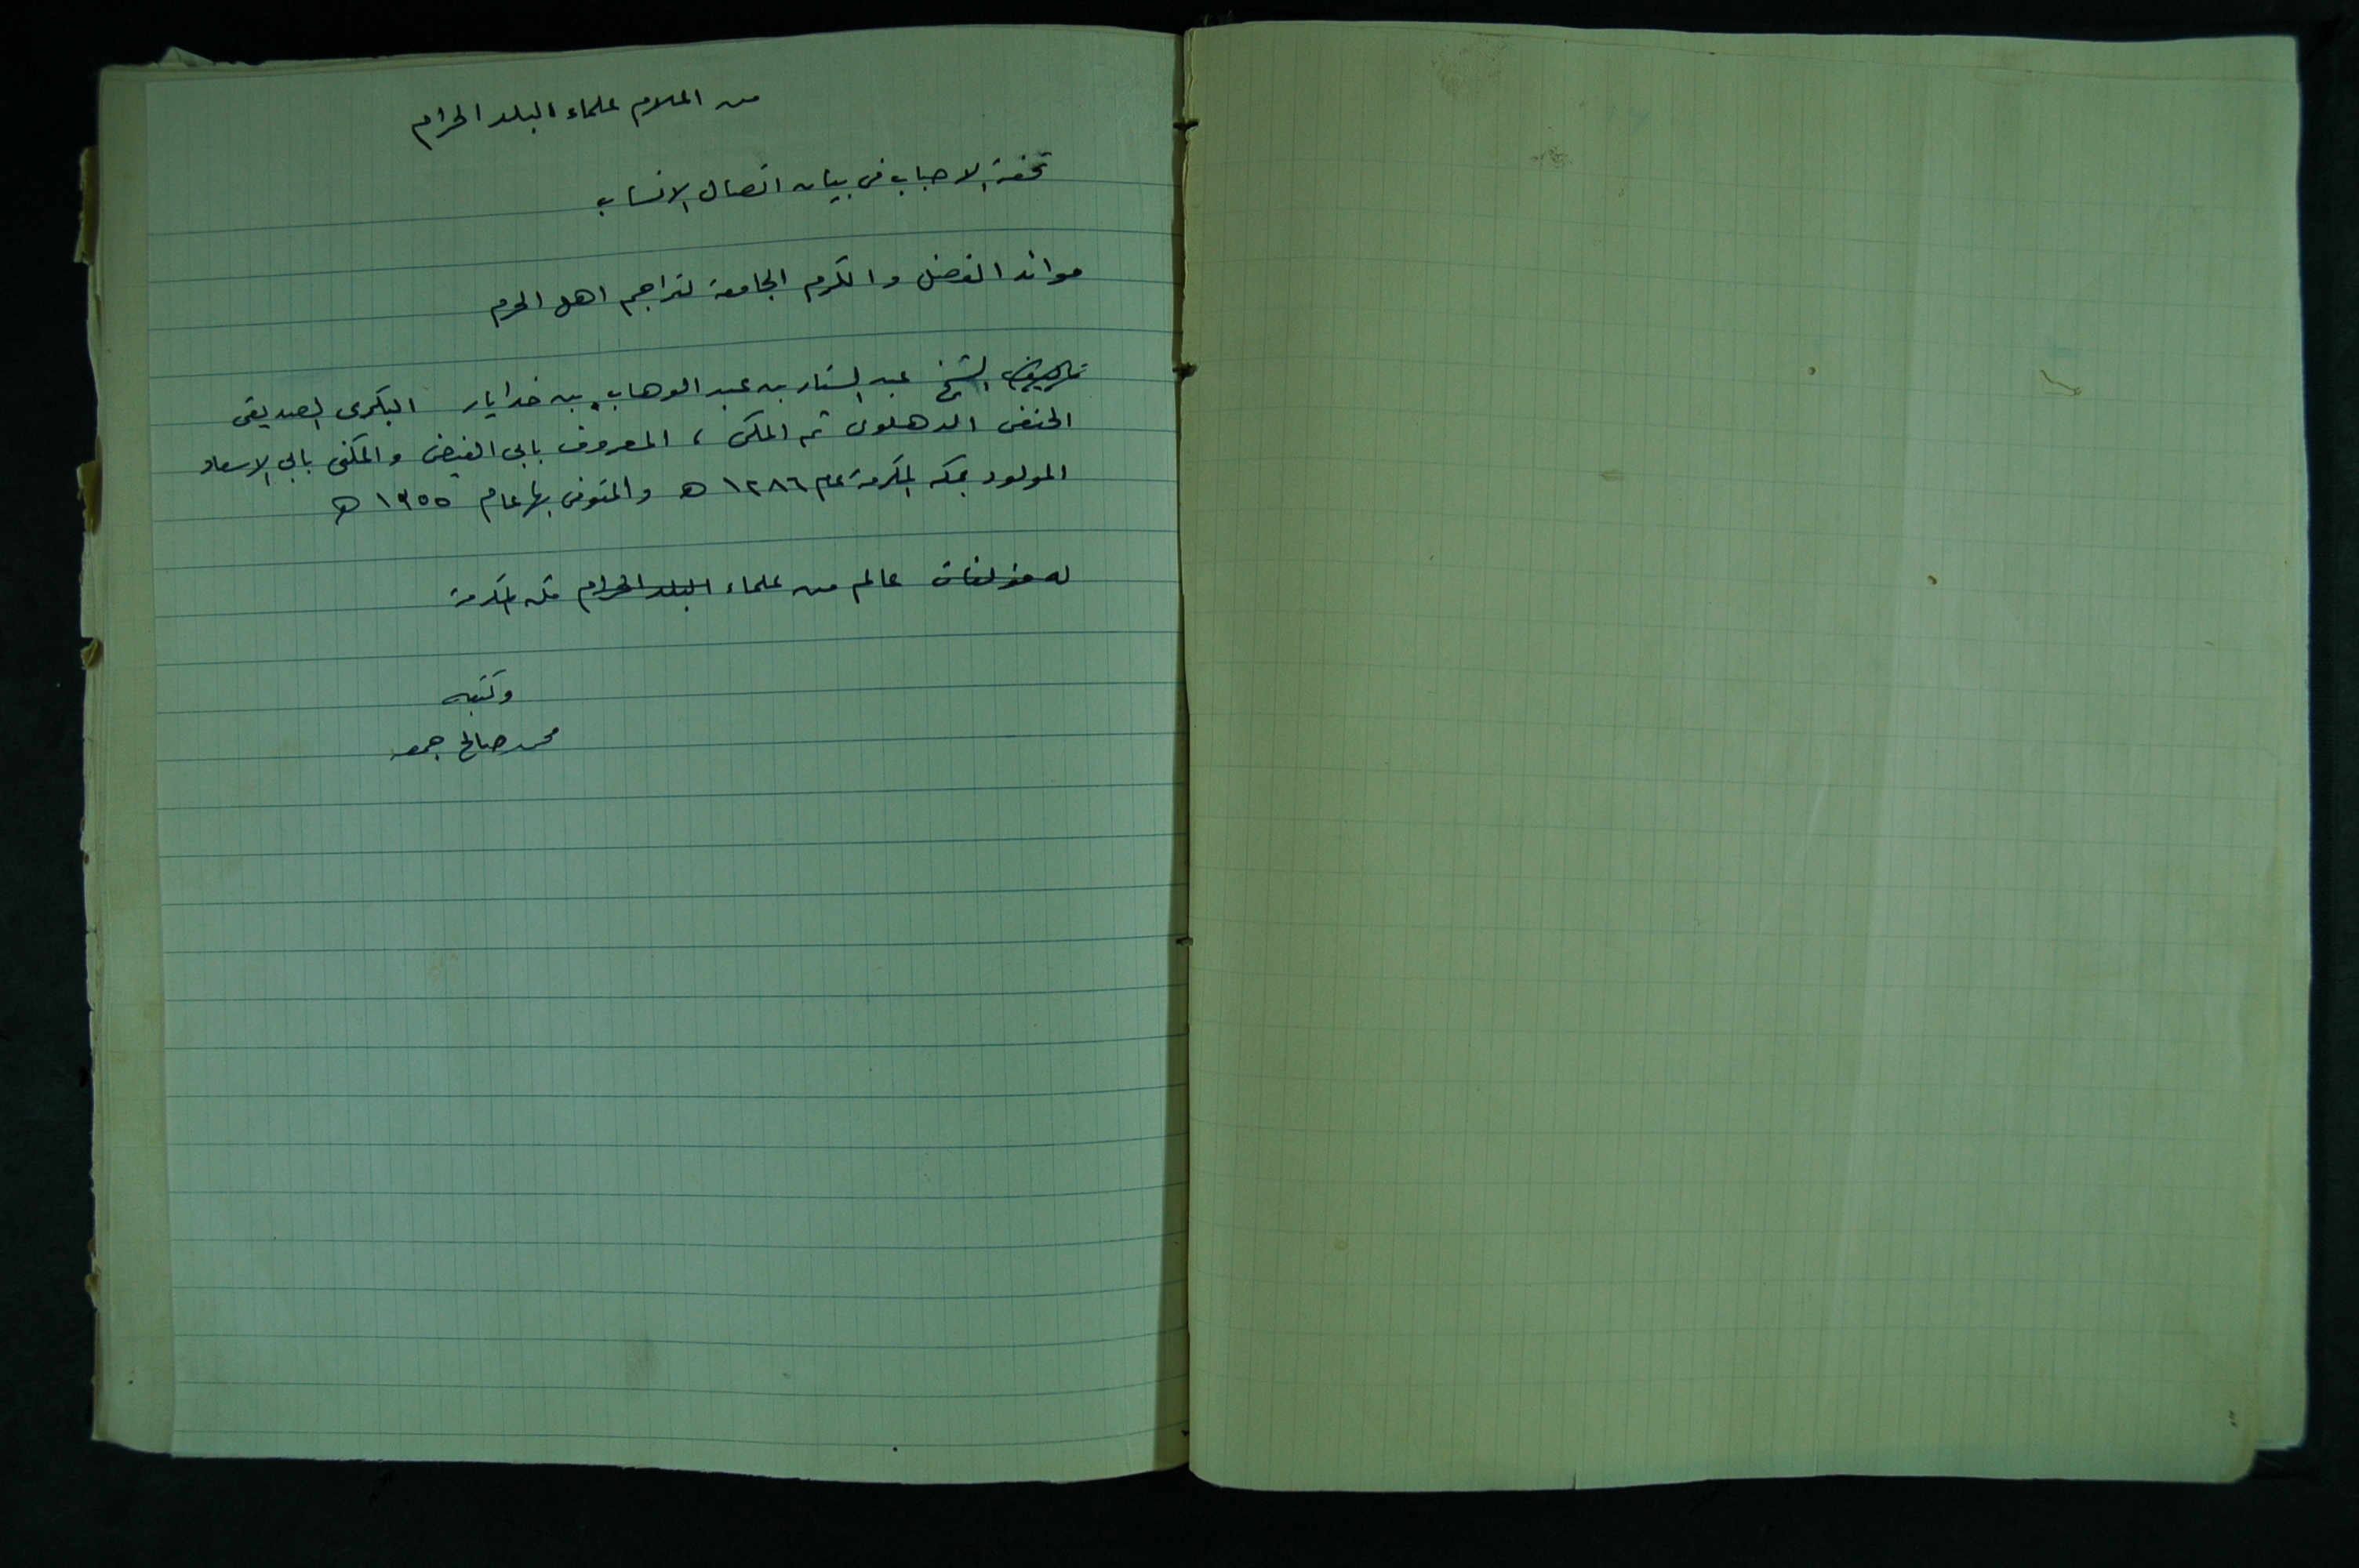 من اعلام علماء البلد الحرام
تحفة الاحباب في بيان اتصال الانساب
موائد الفضل والكرم الجامعة لتراجم اهل الحرم
الشيخ عبد الستار بن عبد الوهاب بن خدايار البكرى الصديقي
الحنفى الدهلوى ثم المكى ، المعروف بابى الفيض والمكنى بابي الاسعاد
المولود بمكه المكرمة عام ١٢٨٦ ه والمتوفى بها عام ١٣٥٥ ه
له مؤلفات عالم من علماء البلد الحرام مكه المكرمة
وكتبه
محمد صالح جمعه